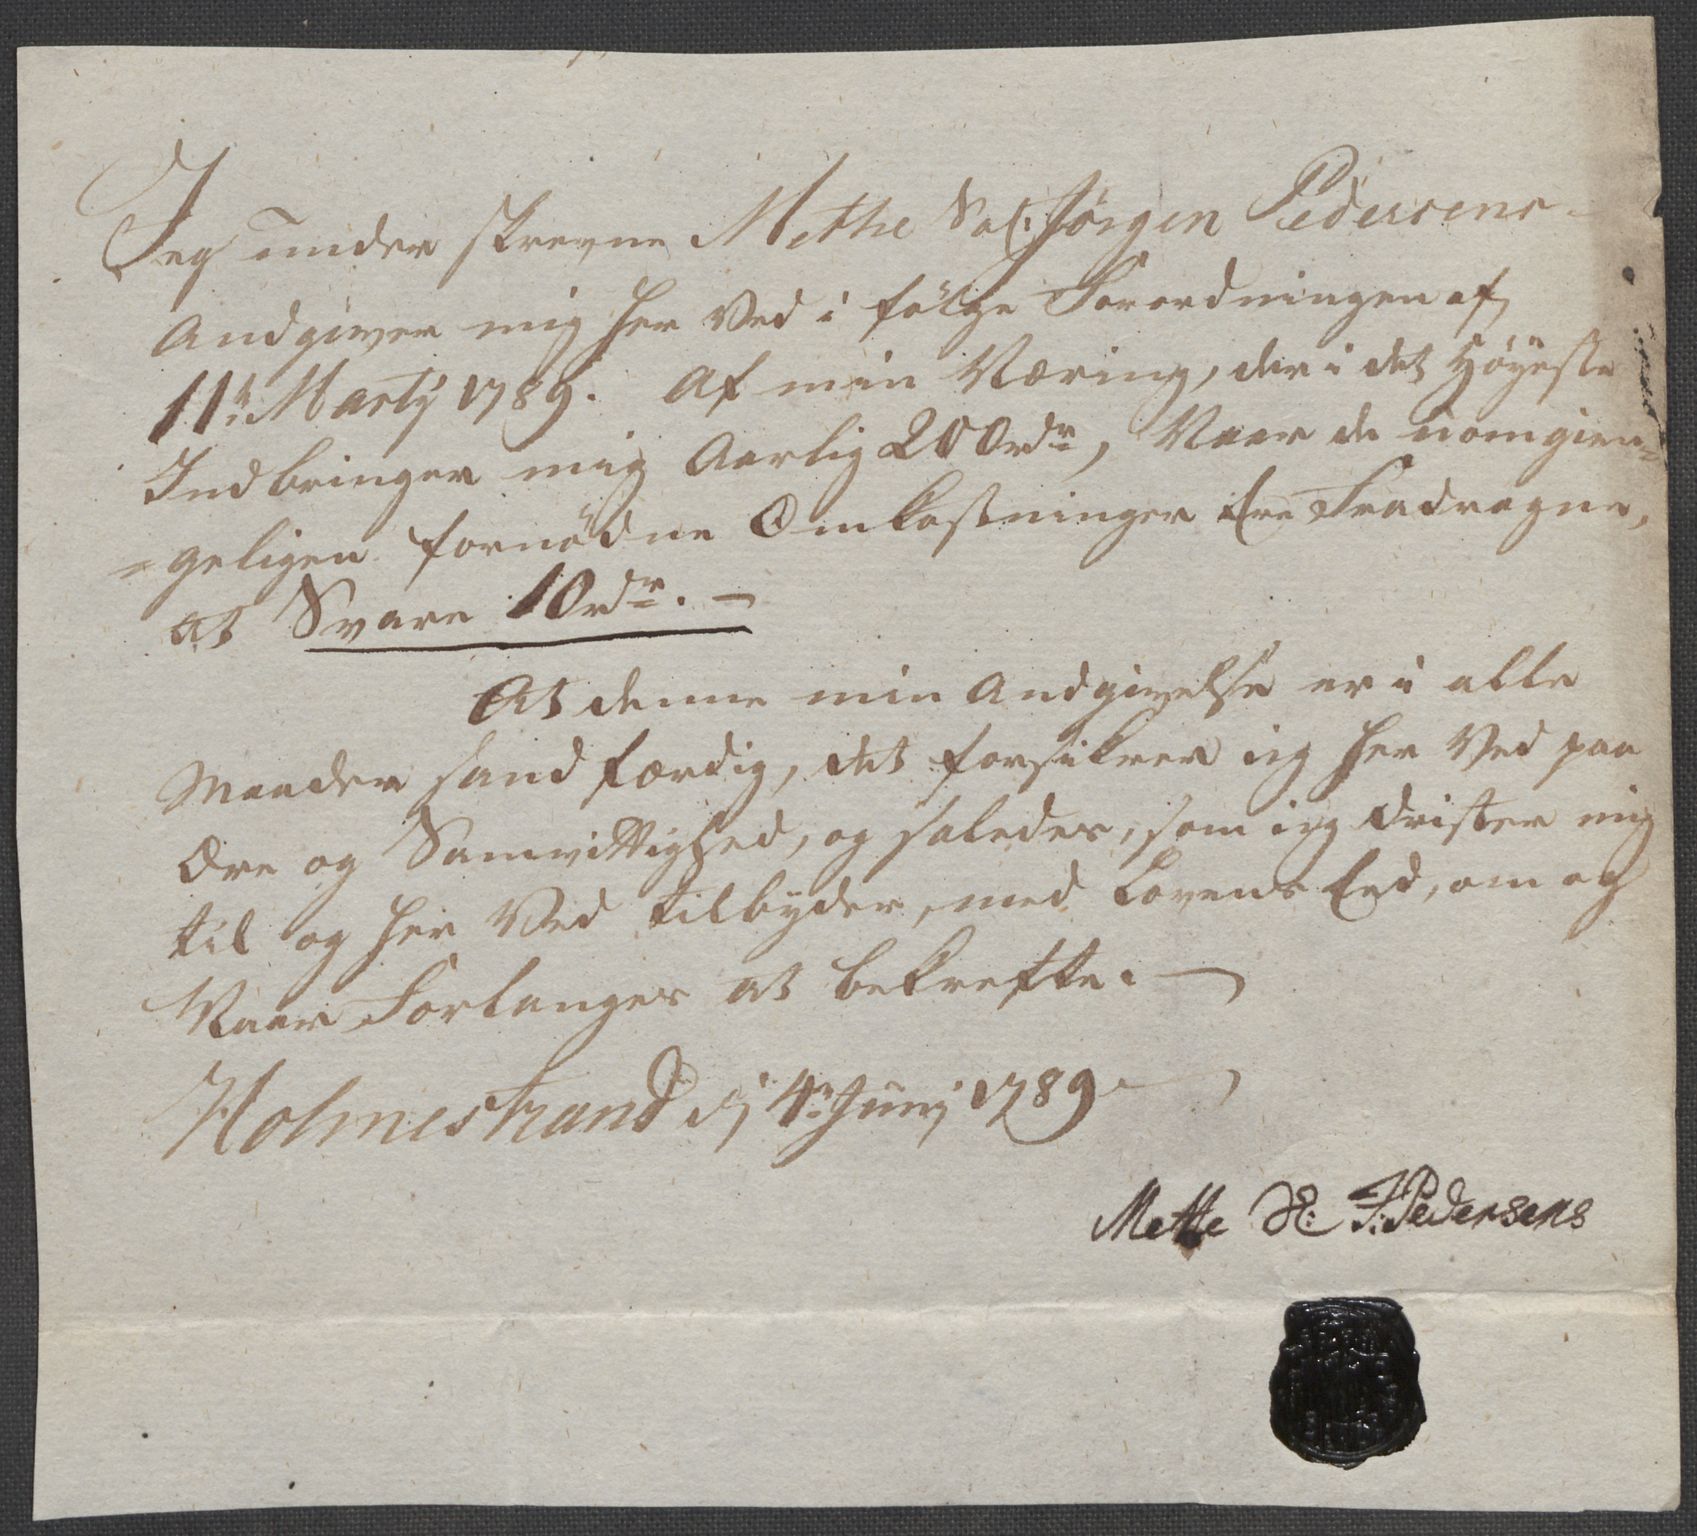 Jeg under skrevne Methe Sal: Jörgen Pedersens
Andgiver mig her Ved i fölge Forordningen af
11te Marty 1789. Af min Næring, der i det Höyeste
Indbringer mig Aarlig 200rdr, Naar de uomgien=
=geligen fornödne Omkostninger Ere Fradragne,
at Svare 10rdr. —
At denne min Andgivelse er i alle
Maader sand færdig, det forsikrer ieg her Ved paa
Ære og Samvittighed, og saledes, som ieg drister mig
til og her Ved tilbyder, med Lovens Eed, om og
Naar Forlanges at bekrefte. —
Holmestrand d 4de Junj 1789
Mette J: Pedersens